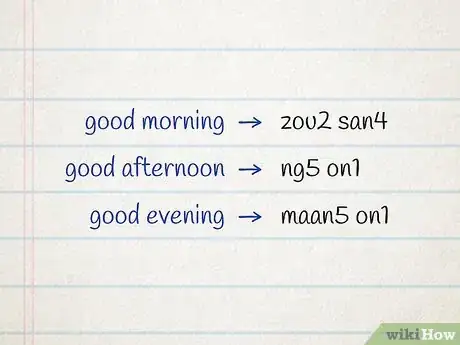 good morning → zou2 san4
good afternoon → ng5 on1
good evening → maan5 on1
wikiHow